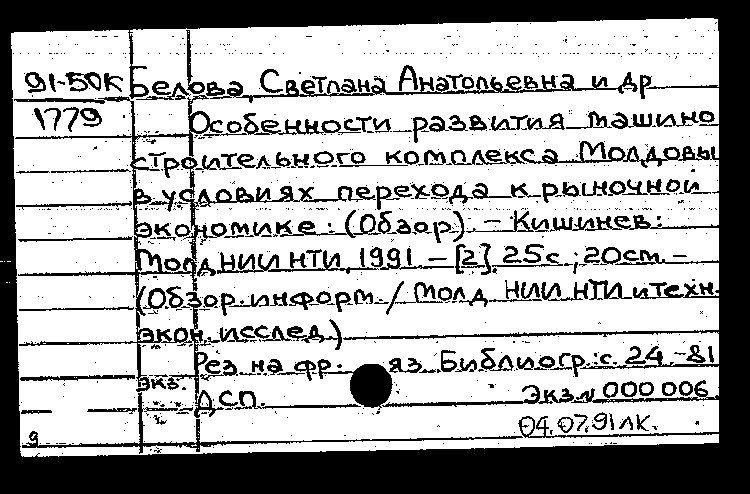 91-50К Белова, Светлана Анатольевна и др
1779 Особенности развития машино
строительного комплекса Молдовы
в условиях перехода к рыночной
экономике: (Обзор) – Кишинев:
МолдНИИНТИ, 1991. – [2], 25с.; 20см. –
(Обзор. информ. / Молд. НИИ НТИ и техн.
экон. исслед.)
Рез. на фр. яз. Библиогр.: с. 24-
экз. ДСП. Экз.N 000 006.
04.07.91 ЛК.
9